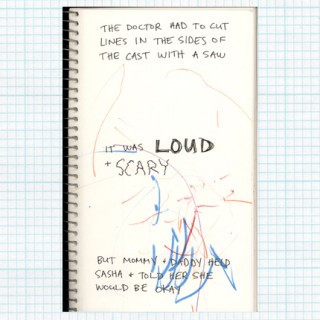 THE DOCTOR HAD TO CUT
LINES IN THE SIDES OF
THE CAST WITH A SAW
IT WAS LOUD
+ SCARY
BUT MOMMY + DADDY HELD
SASHA + TOLD HER SHE
WOULD BE OKAY